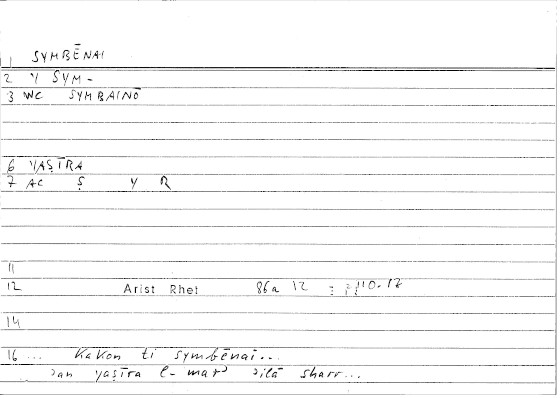 1 SYMBĒNAI
2 Y SYM-
3 WC SYMBAINŌ
6 YAṢĪRA
7 AC Ṣ Y R
11
12 Arist Rhet 86a 12 : 110.12
14
16 ... Kakon ti symbēnai...
ʾan yaṣīra l-marʾ ʾilā sharr...